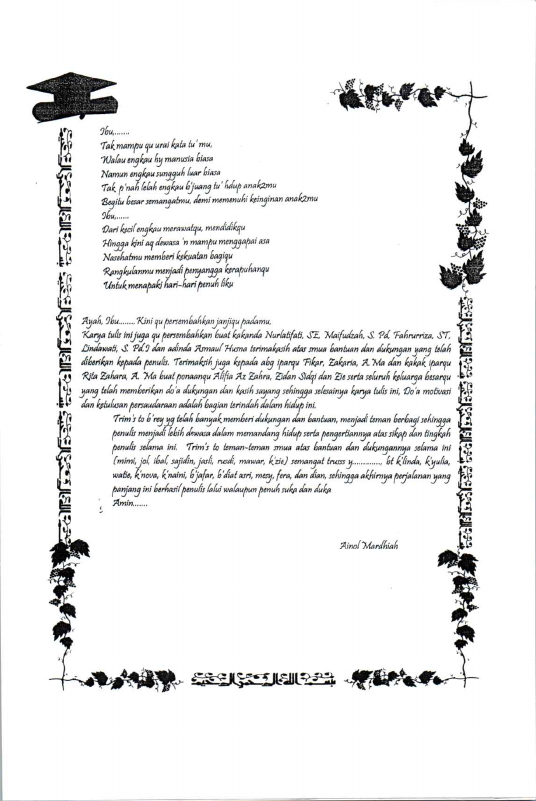 Ibu,.......
Tak mampu qu urai kata tu' mu,
Walau engkau hy manusia biasa
Namun engkau sungguh luar biasa
Tak p'nah lelah engkau b'juang tu' hdup anak2mu
Begitu besar semangatmu, demi memenuhi keinginan anak2mu
Ibu,......
Dari kecil engkau merawatqu, mendidikqu
Hingga kini aq dewasa 'n mampu menggapai asa
Nasehatmu memberi kekuatan bagiqu
Rangkulanmu menjadi penyangga kerapuhanqu
Untuk menapaki hari-hari penuh liku
Ayah, Ibu........ Kini qu persembahkan janjiqu padamu,
Karya tulis ini juga qu persembahkan buat kakanda Nurlatifati, SE, Maifudzah, S. Pd, Fahrurriza, ST,
Lindawati, S. Pd.I dan adinda Asmaul Husna terimakasih atas smua bantuan dan dukungan yang telah
diberikan kepada penulis. Terimaksih juga kepada abg iparqu Fikar, Zakaria, A. Ma dan kakak iparqu
Rita Zahara, A. Ma buat ponaanqu Alifia Az Zahra, Zidan Sidqi dan Zie serta seluruh keluarga besarqu
yang telah memberikan do'a dukungan dan kasih sayang sehingga selesainya karya tulis ini, Do'a motivasi
dan ketulusan persaudaraan adalah bagian terindah dalam hidup ini.
Trim's to b'rey yg telah banyak memberi dukungan dan bantuan, menjadi teman berbagi sehingga
penulis menjadi lebih dewasa dalam memandang hidup serta pengertiannya atas sikap dan tingkah
penulis selama ini. Trim's to teman-teman smua atas bantuan dan dukungannya selama ini
(mimi, jol, ibal, sajidin, jasli, rusdi, mawar, k'zie) semangat trusss y............. bt k'linda, k'yulia,
watie, k'nova, k'naini, b'jafar, b'diat asri, mesy, fera, dan dian, sehingga akhirnya perjalanan yang
panjang ini berhasil penulis lalui walaupun penuh suka dan duka
Amin......
Ainol Mardhiah